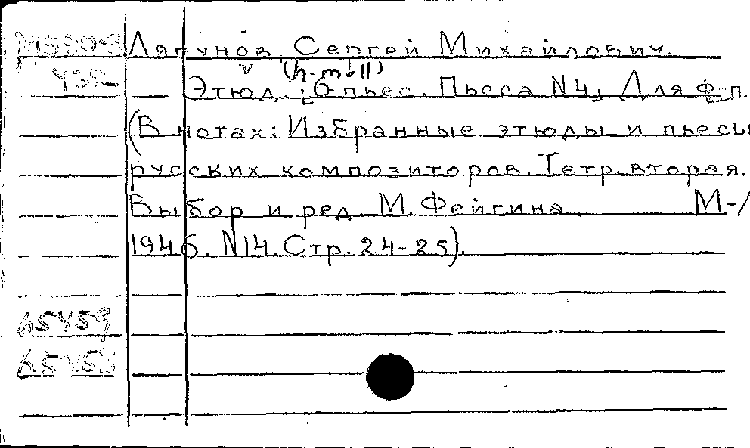 Ляпунов, Сергей Михайлович.
(h-moll)
Этюд. [6 пьес. Пьеса N4] Для ф-п.
(В нотах: Избранные этюды и пьесы
русских композиторов. Тетр. вторая.
Выбор и ред. М. Фейгина. М-Л
1946. N14. Стр. 24-25).
65459